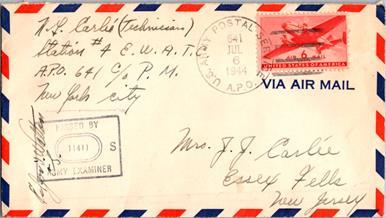 W. L. Carlie (Technician)
Station #4 E.W.A.T.
A.P.O. 641 C/o P.M.
New York City
U.S. ARMY POSTAL SERVICE
641
JUL
6
1944
A.P.O.
UNITED STATES OF AMERICA
VIA AIR MAIL
PASSED BY
11411
S
ARMY EXAMINER
Mrs. J. J. Carlie
Essex Fells
New Jersey